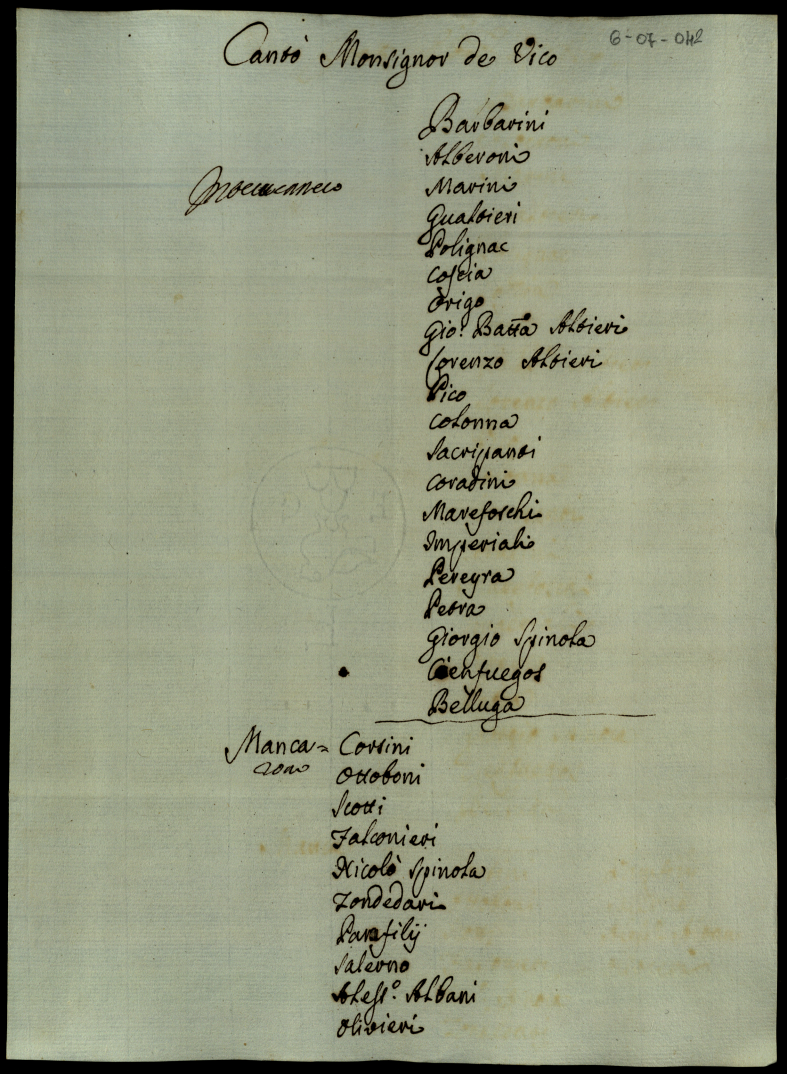 Cantò Monsignor de Vico
6-07-042
Barbarini
Alberoni
Marini
Gualtieri
Polignac
Coscia
Origo
Gio: Batta Altieri
Lorenzo Altieri
Pico
Colonna
Sacripanti
Coradini
Marefoschi
Imperiali
Pereyra
Petra
Giorgio Spinola
Cienfuegos
Belluga
Manca=
rono
Corsini
Ottoboni
Scotti
Falconieri
Nicolò Spinola
Zondedari
Panfilij
Salerno
Aless.º Albani
Olivieri